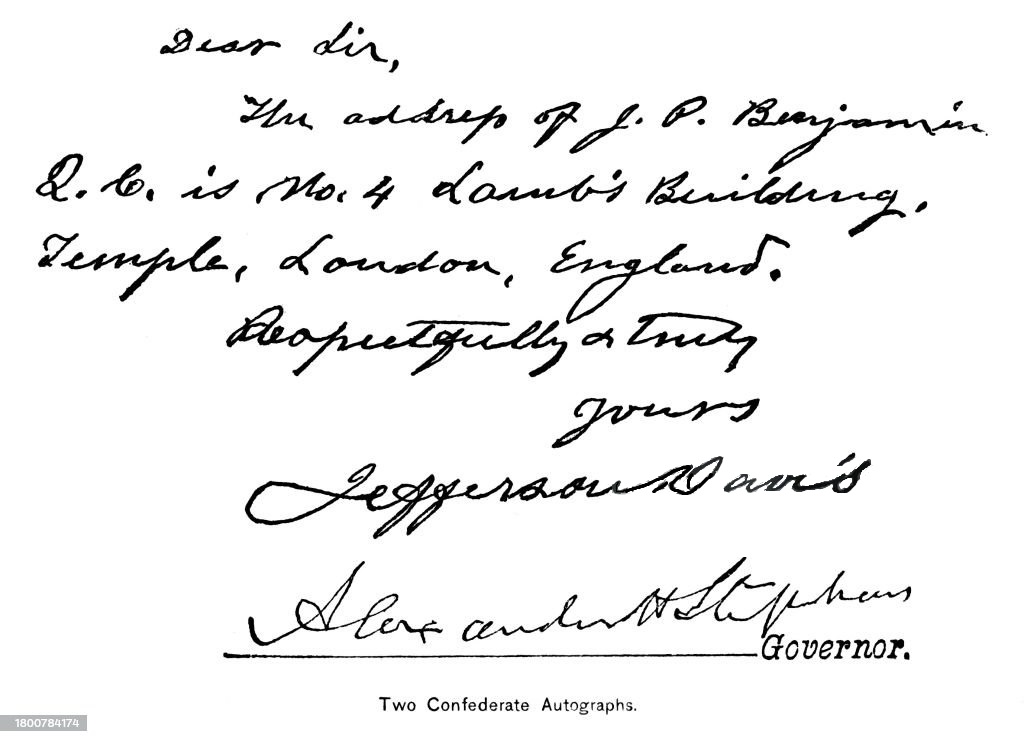 Dear Sir,
The address of J. P. Benjamin
Q. C. is No. 4 Lamb's Building,
Temple, London, England.
Respectfully & truly
yours
Jefferson Davis
Alexander H Stephens
Governor.
Two Confederate Autographs.
1800784174